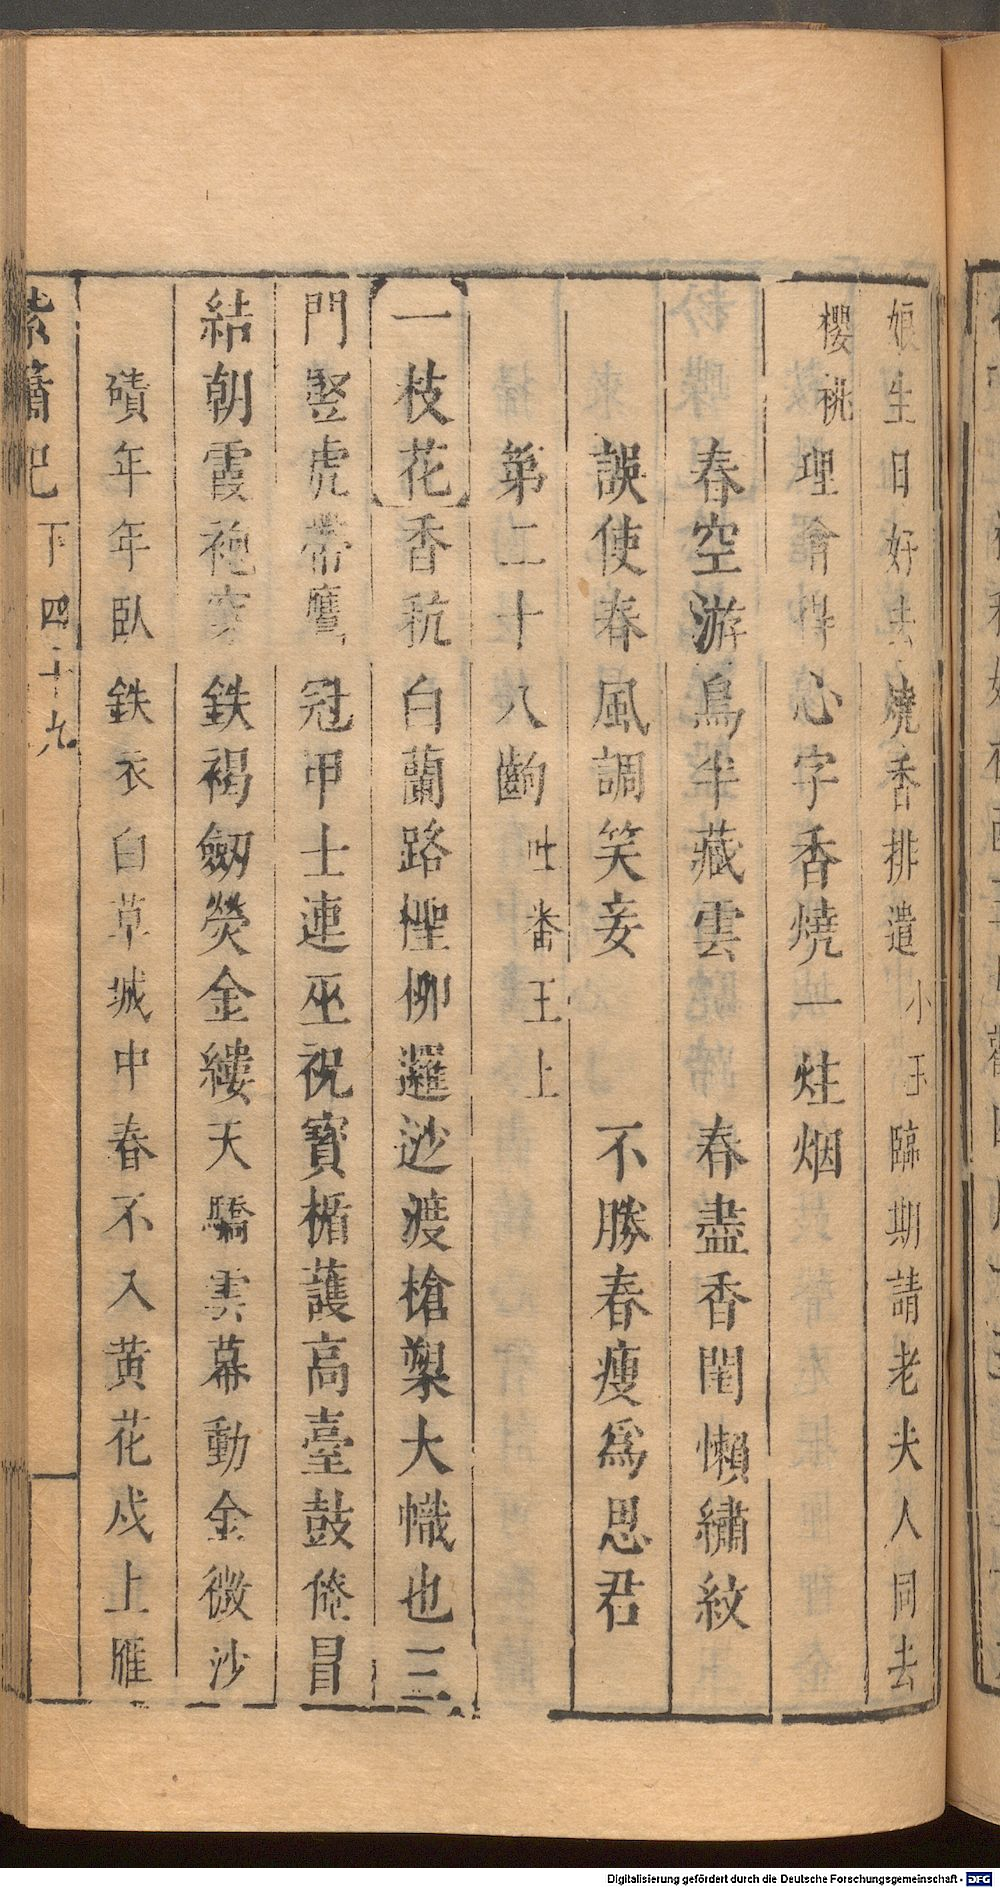 娘生日好去燒香排遣小玉臨期請老夫人同去
櫻桃理會得心字香燒一炷烟
春空游鳥半藏雲　春盡香閨懶繡紋
誤使春風調笑妾　不勝春瘦為思君
第二十八齣吐番王上
一枝花香秔白蘭路檉柳邏逤渡槍槊大幟也三
門豎虎帶鷹冠甲士連巫祝寳楯䕶高臺鼓偃冒
結朝霞袍穿鉄褐劒熒金縷天驕雲幕動金微沙
磧年年臥鉄衣白草城中春不入黄花戍上雁
紫簫記　下　四十九
Digitalisierung gefördert durch die Deutsche Forschungsgemeinschaft - DFG